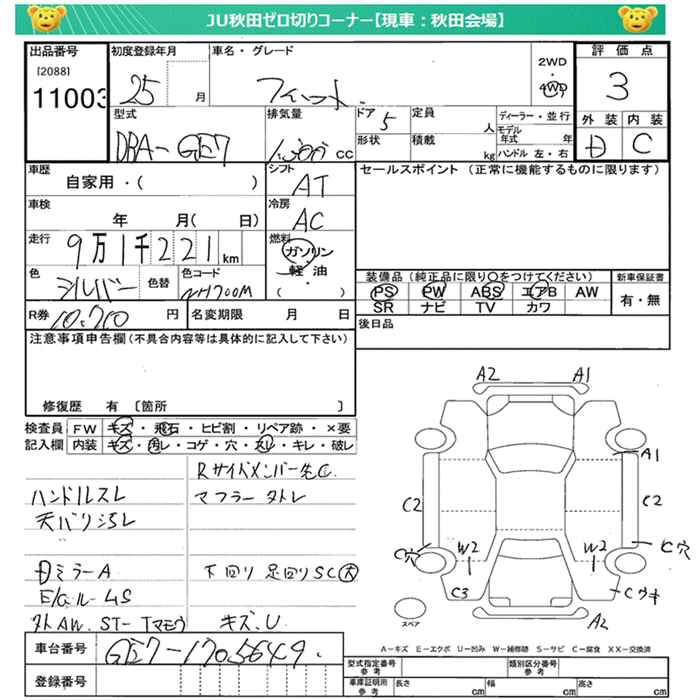 JU秋田ゼロ切りコーナー【現車：秋田会場】
出品番号 初度登録年月 車名・グレード 2WD・4WD 評価点
[2088]
11003 25 月 フィット 3
型式 排気量 ドア 5 定員 人 ディーラー・並行 外装 内装
DBA-GE7 1,300 cc 形状 積載 kg モデル年式 年 ハンドル 左・右 D C
車歴 シフト セールスポイント（正常に機能するものに限ります）
自家用・（ ） AT
車検 冷房
年 月（ 日） AC
走行 燃料
9万1千221km ガソリン・軽油・（ ）
色 シルバー 色替 色コード NH700M
装備品（純正品に限り○をつけてください） 新車保証書
PS PW ABS エアB AW 有・無
SR ナビ TV カワ
R券 10,710 円 名変期限 月 日
後日品
注意事項申告欄（不具合内容等は具体的に記入して下さい）
修復歴 有 〔箇所 〕
検査員記入欄 FW キズ・飛石・ヒビ割・リペア跡・×要
内装 キズ・汚レ・コゲ・穴・スレ・キレ・破レ
RサイドメンバーC
ハンドルスレ マフラータレ
天バリ汚レ
DミラーA 下回り 足回りSC大
E/Gル-4S
外AW. ST-Tマモウ キズ、U
A2 A1
A1
C2 C2
C穴 W2 W2 C穴
C3 Cウキ
A2
スペア
A-キズ E-エクボ U-凹み W-補修跡 S-サビ C-腐食 XX-交換済
車台番号 GE7-1705649
登録番号
型式指定番号 参考 類別区分番号 参考
車庫証明用 参考 長さ cm 幅 cm 高さ cm